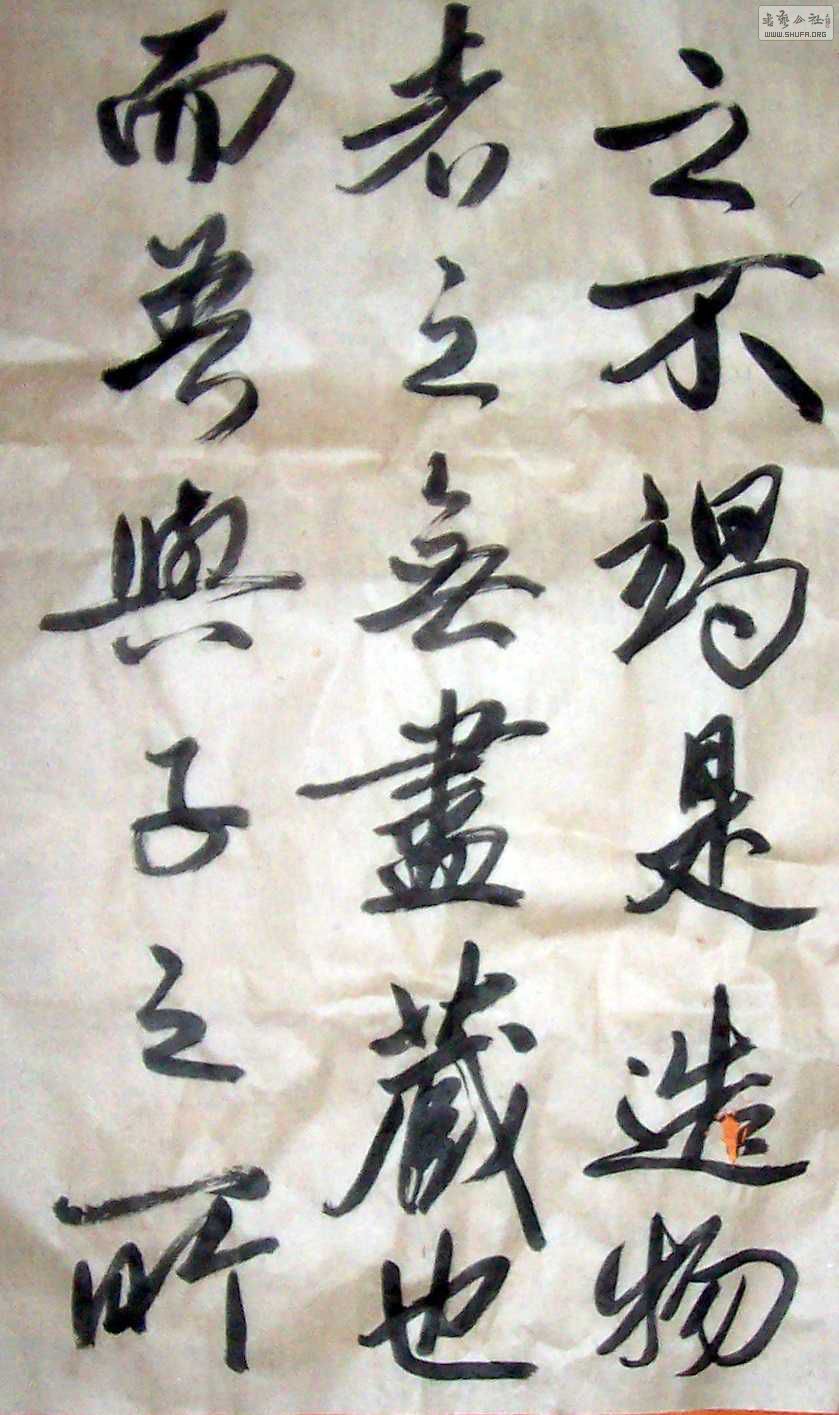 之不竭是造物
者之無盡藏也
而吾與子之所
WWW.SHUFA.ORG